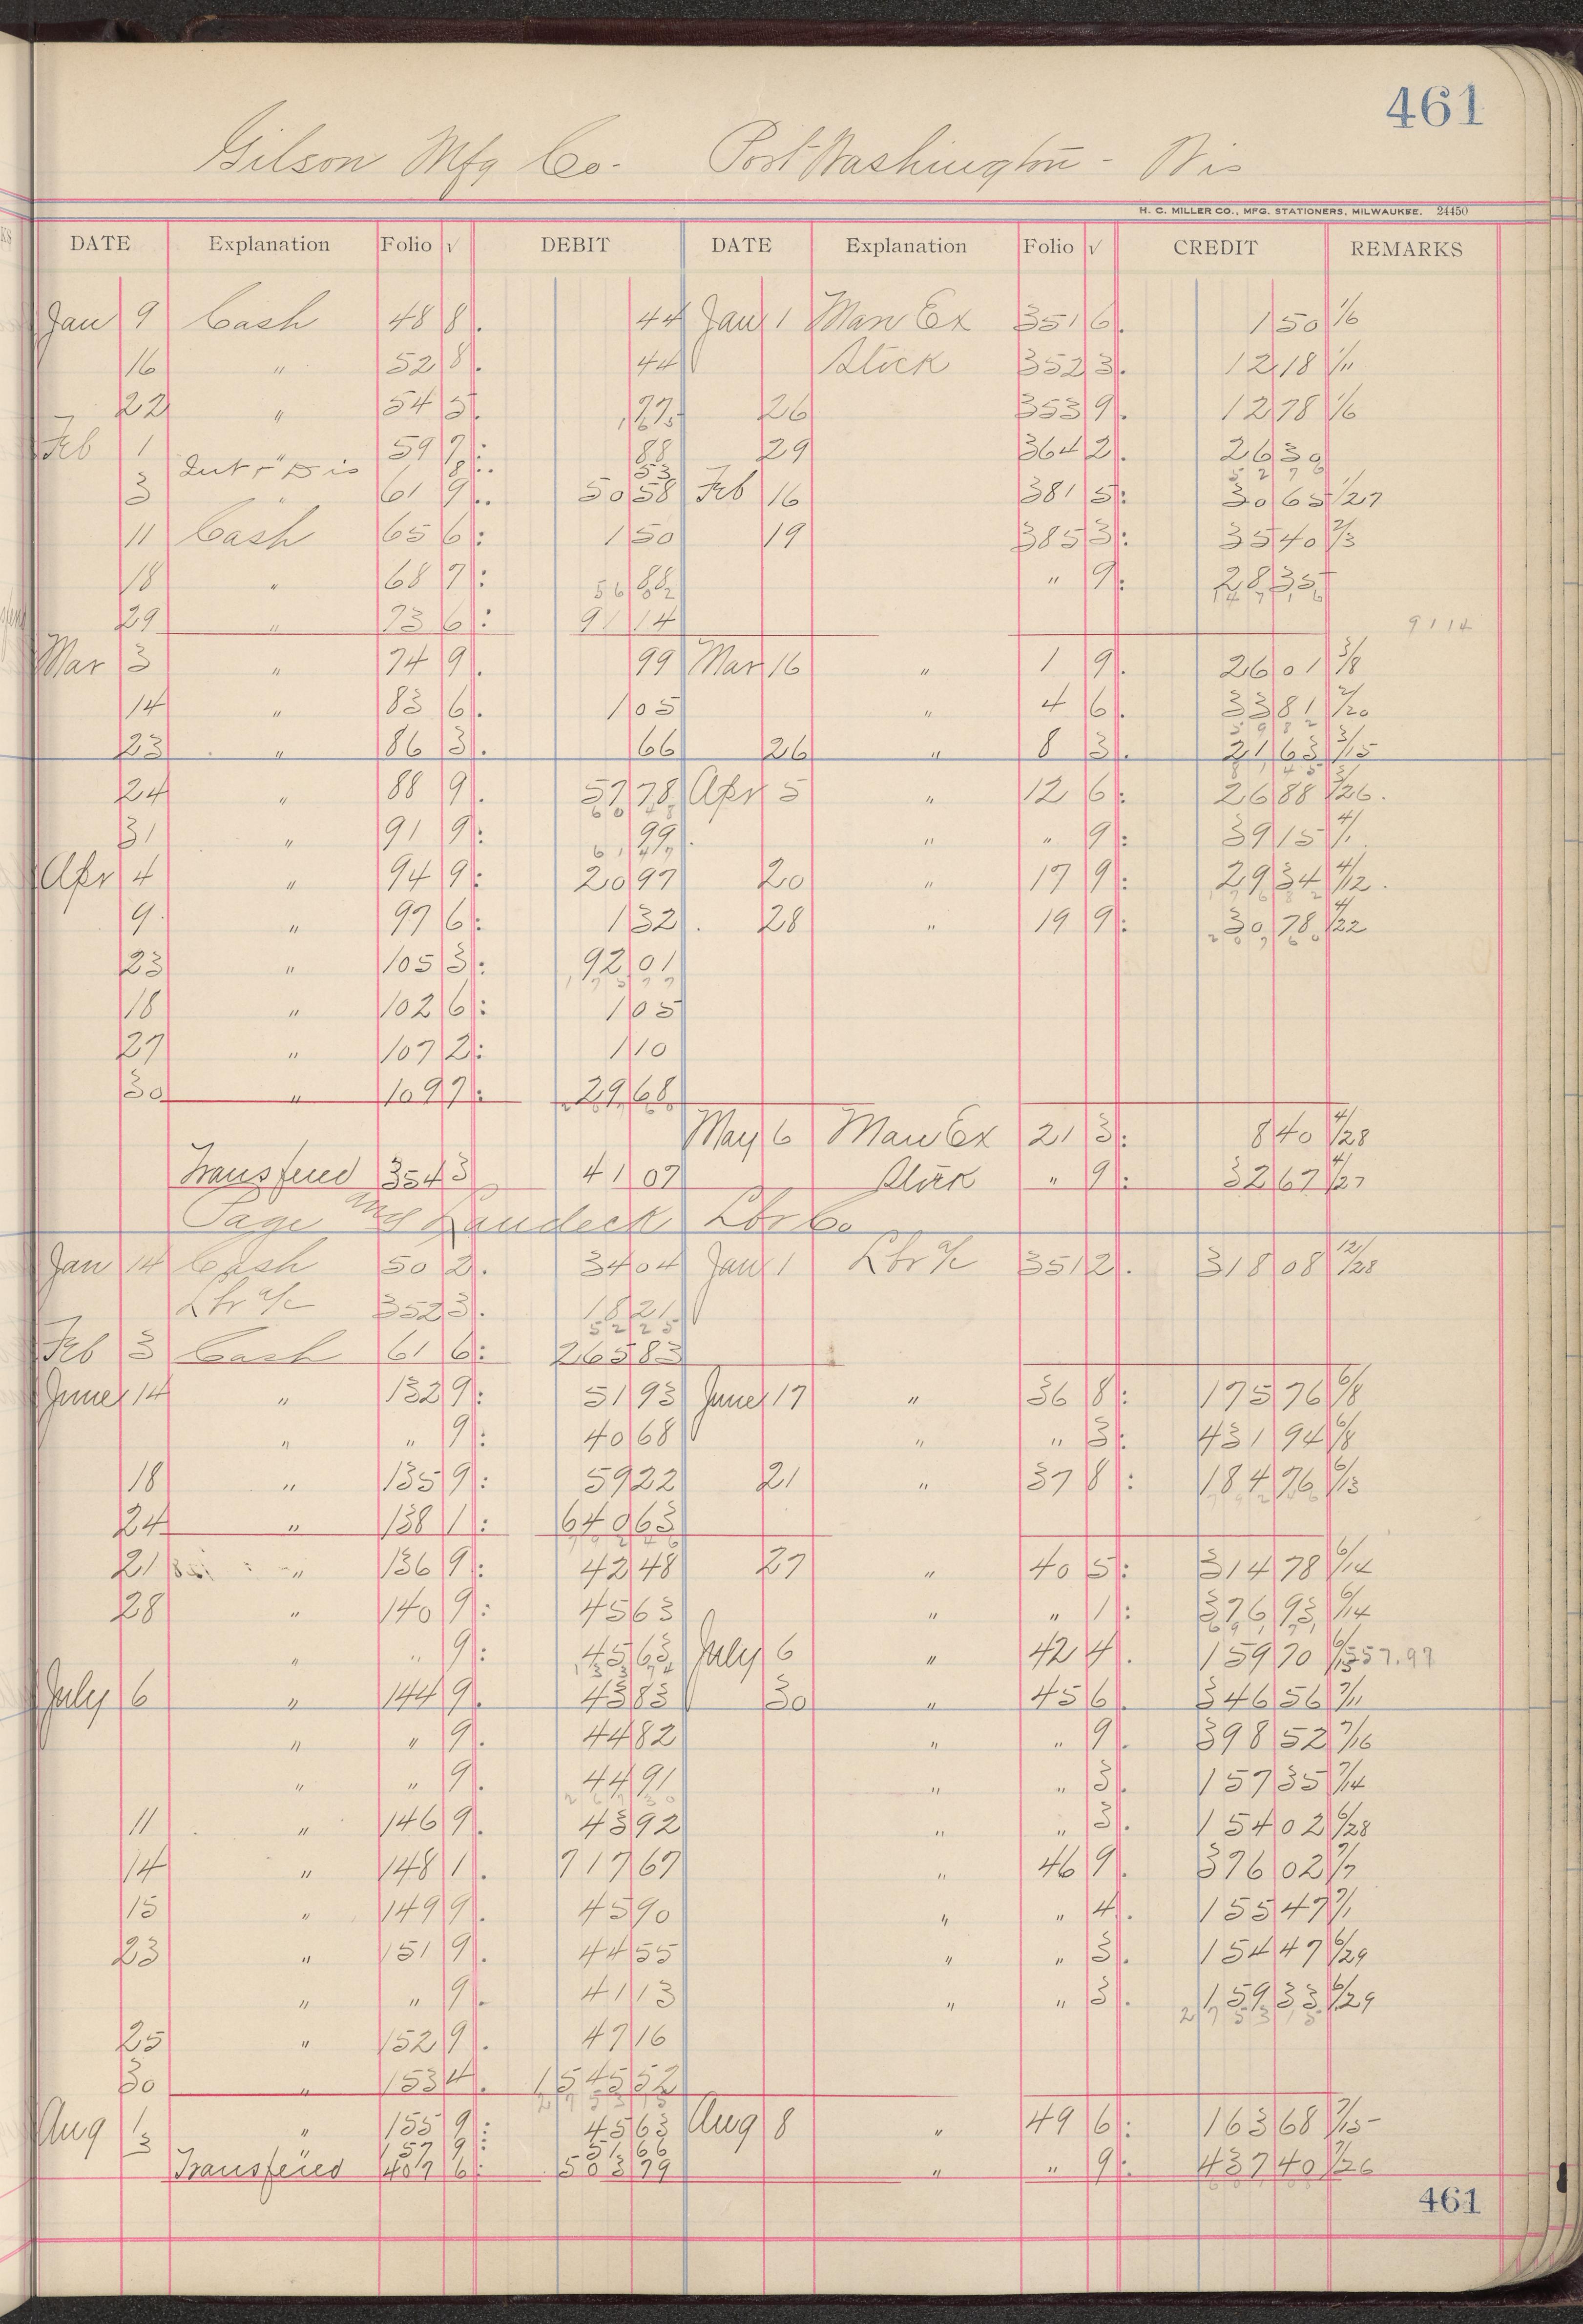 461
Gilson Mfg Co. Port Washington - Wis
H. C. MILLER CO., MFG. STATIONERS, MILWAUKEE. 24450
DATE Explanation Folio √ DEBIT DATE Explanation Folio √ CREDIT REMARKS
Jan 9 Cash 48 8 44 Jan 1 Man Ex 351 6 1 50 1/6
16 " 52 8 44 Stock 352 3 12 18 1/11
22 " 54 5 77 26 353 9 12 78 1/6
Feb 1 " 59 7 88 29 364 2 26 39
Int + Dis 8 53 52 78
3 " 61 9 50 58 Feb 16 381 5 30 65 1/27
11 Cash 65 6 1 50 19 385 3 35 40 2/3
18 " 68 7 88 " 9 28 35
56 62
29 " 73 6 91 14 91 14
Mar 3 " 74 9 99 Mar 16 " 1 9 26 01 3/8
14 " 83 6 1 05 " 4 6 33 81 2/20
23 " 86 3 66 26 " 8 3 21 63 3/15
24 " 88 9 57 78 Apr 5 " 12 6 26 88 3/26
31 " 91 9 99 " " 9 39 15 4/1
Apr 4 " 94 9 20 97 20 " 17 9 29 34 4/12
9 " 97 6 1 32 28 " 19 9 30 78 4/22
23 " 105 3 92 01
18 " 102 6 1 05
27 " 107 2 1 10
30 " 109 7 29 68
May 6 Man Ex 21 3 8 40 4/28
Transfered 354 3 41 07 Stock " 9 32 67 4/27
Page and Landeck Lbr Co
Jan 14 Cash 50 2 34 04 Jan 1 Lbr a/c 351 2 318 08 12/28
Lbr a/c 352 3 18 21
52 25
Feb 3 Cash 61 6 265 83
June 14 " 132 9 51 93 June 17 " 36 8 175 76 6/8
" " 9 40 68 " " 3 431 94 6/8
18 " 135 9 59 22 21 " 37 8 184 76 6/13
24 " 138 1 640 63
21 " 136 9 42 48 27 " 40 5 314 78 6/14
28 " 140 9 45 63 " " 1 376 93 6/14
" " 9 45 63 July 6 " 42 4 159 70 557.97
July 6 " 144 9 43 83 30 " 45 6 346 56 7/11
" " 9 44 82 " " 9 398 52 7/16
" " 9 44 91 " " 3 157 35 7/14
11 " 146 9 43 92 " " 3 154 02 6/28
14 " 148 1 717 67 " 46 9 376 02 7/7
15 " 149 9 45 90 " " 4 155 47 7/1
23 " 151 9 44 55 " " 3 154 47 6/29
" " 9 41 13 " " 3 159 33 6/29
25 " 152 9 47 16
30 " 153 4 1545 52
Aug 1 " 155 9 45 63 Aug 8 " 49 6 163 68 7/15
3 " 157 9 51 66
Transfered 407 6 503 79 " " 9 437 40 7/26
461